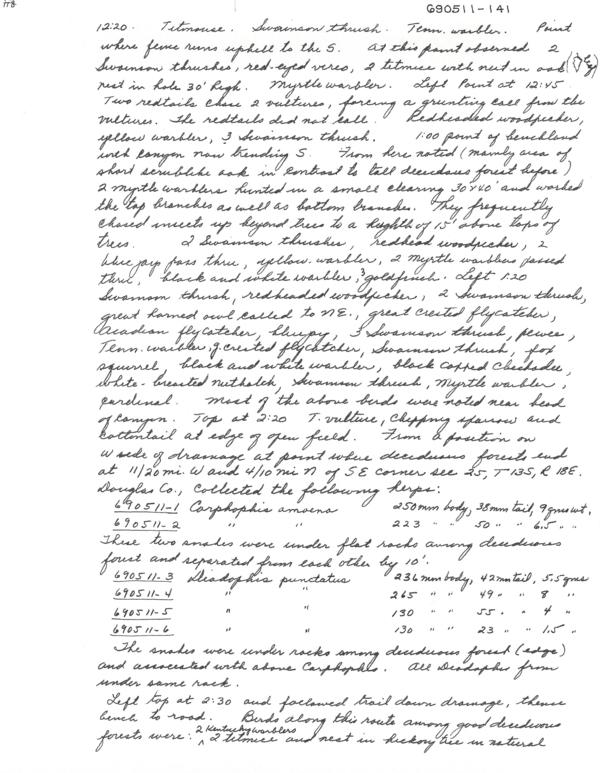 118
690511-141
12:20. Titmouse. Swainson thrush. Tenn. warbler. Point
where fence runs uphill to the S. At this point observed 2
Swainson thrushes, red-eyed vireo, 2 titmice with nest in oak
nest in hole 30' high. Myrtle warbler. Left Point at 12:45
Two redtails chase 2 vultures, forcing a grunting call from the
vultures. The redtails did not call. Redheaded woodpecker,
yellow warbler, 3 Swainson thrush. 1:00 point of benchland
with canyon now trending S. From here noted (mainly area of
short scrublike oak in contrast to tall deciduous forest before)
2 myrtle warblers hunted in a small clearing 30'x40' and worked
the top branches as well as bottom branches. They frequently
chased insects up beyond trees to a heighth of 15' above tops of
trees. 2 Swainson thrushes, redhead woodpecker, 2
blue jay pass thru, yellow warbler, 2 myrtle warblers passed
thru, black and white warbler, 3 goldfinch. Left 1:20
Swainson thrush, redheaded woodpecker, 2 Swainson thrush,
great horned owl called to NE., great crested flycatcher,
Acadian flycatcher, bluejay, 3 Swainson thrush, pewee,
Tenn. warbler, g. crested flycatcher, Swainson thrush, fox
squirrel, black and white warbler, black capped chickadee,
white-breasted nuthatch, Swainson thrush, Myrtle warbler,
cardinal. Most of the above birds were noted near head
of canyon. Top at 2:20 T. vulture, Chipping sparrow and
cottontail at edge of open field. From a position on
W side of drainage at point where deciduous forests end
at 11/20 mi. W and 4/10 mi N of SE corner sec 25, T13S, R18E.
Douglas Co., collected the following herps:
690511-1 Carphophis amoena 250mm body, 38mm tail, 9 gms wt.
690511-2 " " 223 " 50 " " 6.5 " "
These two snakes were under flat rocks among deciduous
forest and separated from each other by 10'.
690511-3 Diadophis punctatus 236mm body, 42mm tail, 5.5 gms
690511-4 " " 265 " " 49 " " 8 "
690511-5 " " 130 " " 55 " " 4 "
690511-6 " " 130 " " 23 " " 1.5 "
The snakes were under rocks among deciduous forest (edge)
and associated with above Carphophis. All Diadophis from
under same rock.
Left top at 2:30 and followed trail down drainage, thence
bench to road. Birds along this route among good deciduous
forests were: 2 Kentucky warblers 2 titmice and nest in hickory tree in natural